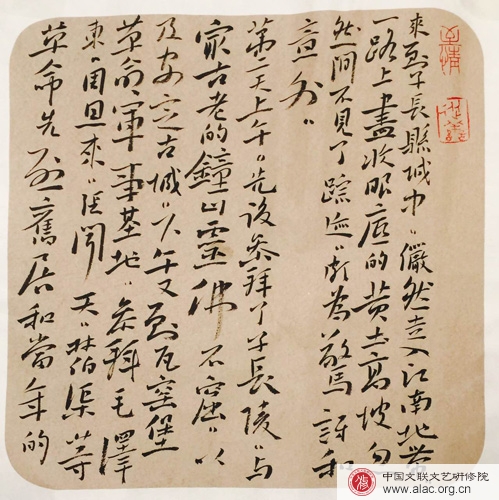 來到子長縣城中〃儼然走入江南地带
一路上盡收眼底的黄土高坡勿
然间不見了踪迹〃頗為驚訝和
意外〃
第二天上午〃先後参拜了子長陵〃与
家古老的鐘山靈佛石窟〃以
及安定古城〃下午又到瓦窑堡
革命軍事基地〃参拜毛澤
東〃周恩來〃張聞天〃林伯渠等
革命先烈舊居和當年的
中国文联文艺研修院
www.alac.org.cn